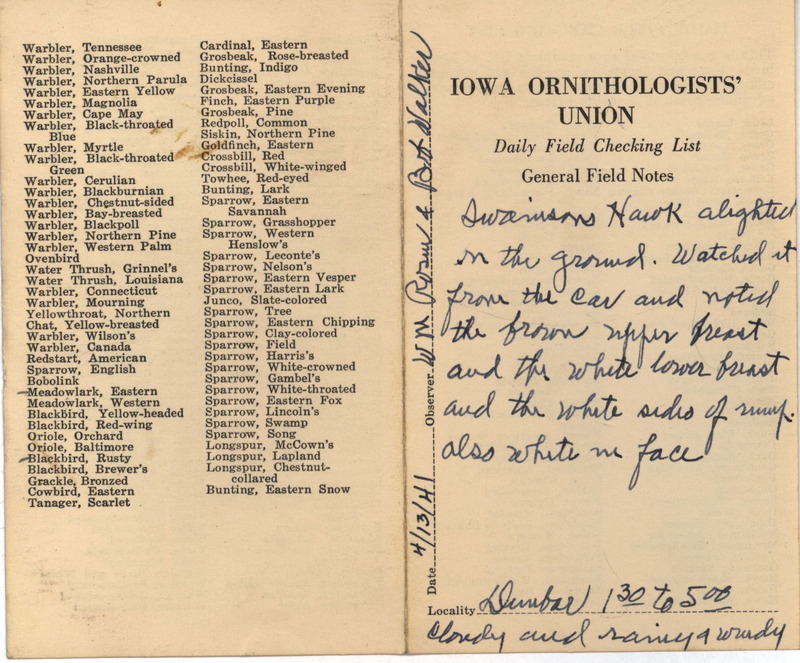 Warbler, Tennessee
Warbler, Orange-crowned
Warbler, Nashville
Warbler, Northern Parula
Warbler, Eastern Yellow
Warbler, Magnolia
Warbler, Cape May
Warbler, Black-throated
Blue
Warbler, Myrtle
Warbler, Black-throated
Green
Warbler, Cerulian
Warbler, Blackburnian
Warbler, Chestnut-sided
Warbler, Bay-breasted
Warbler, Blackpoll
Warbler, Northern Pine
Warbler, Western Palm
Ovenbird
Water Thrush, Grinnel's
Water Thrush, Louisiana
Warbler, Connecticut
Warbler, Mourning
Yellowthroat, Northern
Chat, Yellow-breasted
Warbler, Wilson's
Warbler, Canada
Redstart, American
Sparrow, English
Bobolink
Meadowlark, Eastern
Meadowlark, Western
Blackbird, Yellow-headed
Blackbird, Red-wing
Oriole, Orchard
Oriole, Baltimore
Blackbird, Rusty
Blackbird, Brewer's
Grackle, Bronzed
Cowbird, Eastern
Tanager, Scarlet
Cardinal, Eastern
Grosbeak, Rose-breasted
Bunting, Indigo
Dickcissel
Grosbeak, Eastern Evening
Finch, Eastern Purple
Grosbeak, Pine
Redpoll, Common
Siskin, Northern Pine
Goldfinch, Eastern
Crossbill, Red
Crossbill, White-winged
Towhee, Red-eyed
Bunting, Lark
Sparrow, Eastern
Savannah
Sparrow, Grasshopper
Sparrow, Western
Henslow's
Sparrow, Leconte's
Sparrow, Nelson's
Sparrow, Eastern Vesper
Sparrow, Eastern Lark
Junco, Slate-colored
Sparrow, Tree
Sparrow, Eastern Chipping
Sparrow, Clay-colored
Sparrow, Field
Sparrow, Harris's
Sparrow, White-crowned
Sparrow, Gambel's
Sparrow, White-throated
Sparrow, Eastern Fox
Sparrow, Lincoln's
Sparrow, Swamp
Sparrow, Song
Longspur, McCown's
Longspur, Lapland
Longspur, Chestnut-
collared
Bunting, Eastern Snow
Date 4/13/41 Observer Wm & Bob Walker
IOWA ORNITHOLOGISTS'
UNION
Daily Field Checking List
General Field Notes
Swainsons Hawk alighted
on the ground. Watched it
from the car and noted
the brown upper breast
and the white lower breast
and the white sides of rump.
also white in face
Locality Dunbar 1 30 to 5 00
Cloudy and rainy & windy